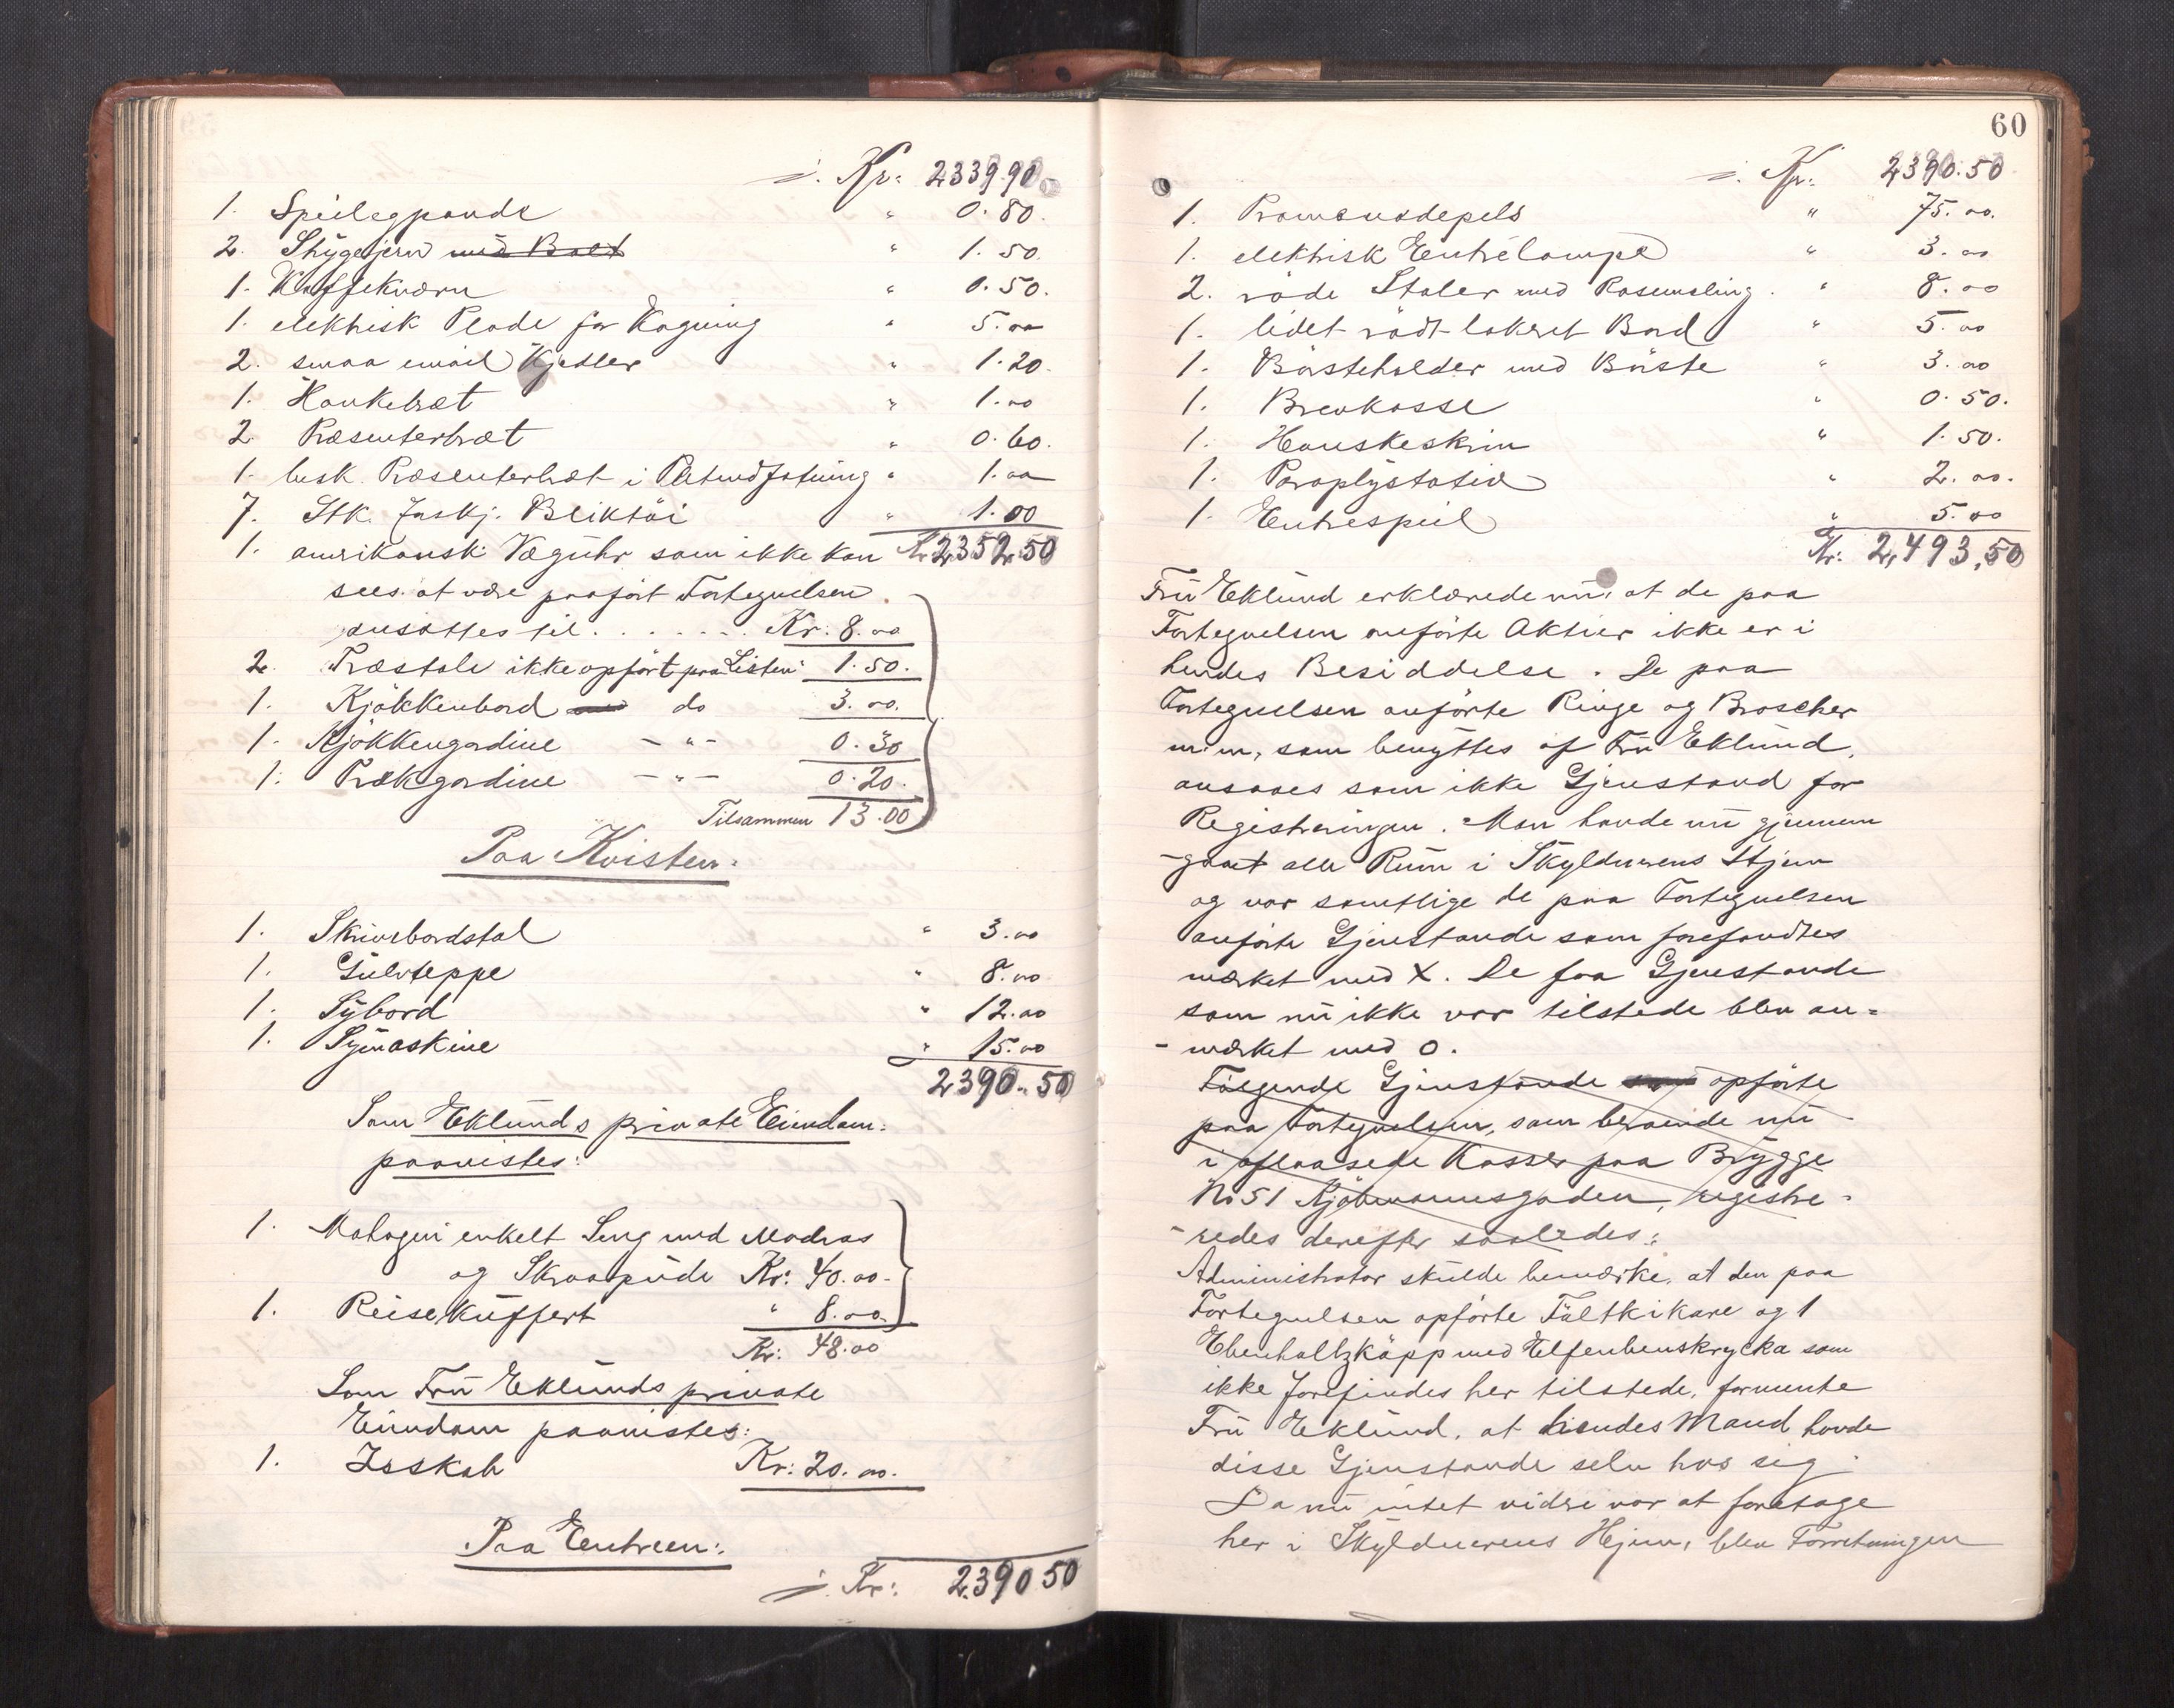 ÷ Kr: 2339.90
1. Speilegpande " 0.80.
2. Strygejern med Bolt " 1.50.
1. Kaffekværn " 0.50.
1. elektrisk Plade for Kogning " 5.00
2. smaa email Kjedler " 1.20.
1. Hankebræt " 1.00
2. Præsenterbræt " 0.60.
1. besk. Præsenterbræt i " 1.00
7. Stk. forskj. Bliktöi " 1.00
1. amerikansk Vægühr som ikke kan Kr 2352.50
sees at være paaført Fortegnelsen
ansættes til . . . . . . . Kr: 8.00
2. Træstole ikke opfört paa Listen: 1.50.
1. Kjökkenbord do 3.00.
1. Kjökkengardine — " — 0.30
1. Trækgardine — " — 0.20.
Tilsammen 13.00
Paa Kvisten:
1. Skrivebordstol " 3.00
1. Gülvteppe " 8.00
1. Sÿbord " 12.00
1. Sÿmaskine " 15.00
2390.50
Som Eklünds private Eiendom
paavistes:
1. Mahogni enkelt Seng med Madras
og Skraapüde Kr: 40.00
1. Reiseküffert " 8.00
Kr: 48.00
Som Frü Eklünds private
Eiendom paavistes:
1. Isskab Kr: 20.00.
Paa Entreen:
÷ Kr: 2.390 50
60
÷ Kr: 2390.50
1. Promenadepels " 75.00.
1. elektrisk Entrélampe " 3.00
2. röde Stoler med Rosemaling " 8.00
1. lidet rödt lakeret Bord " 5.00
1. Börsteholder med Börste " 3.00
1. Brevkasse " 0.50.
1. Hanskeskrin " 1.50.
1. Paraplÿstativ " 2.00.
1. Entrespeil " 5.00
Kr: 2,493,50
Frü Eklünd erklærede nü, at de paa
Fortegnelsen anförte Aktier ikke er i
hendes Besiddelse. De paa
Fortegnelsen anförte Ringe og Broscher
m.m, som benÿttes af Frü Eklünd,
ansaaes som ikke Gjenstand for
Registreringen. Man havde nü gjennem
-gaaet alle Rüm i Skyldnerens Hjem
og var samtlige de paa Fortegnelsen
anförte Gjenstande som forefandtes
mærket med X. De faa Gjenstande
som nü ikke var tilstede blev an=
- mærket med 0.
Fölgende Gjenstande som opförte
paa Fortegnelsen, som beroende nü
i aflaasede Kasser paa Brÿgge
No 51 Kjöbmannsgaden, registre-
- redes derefter saaledes:
Administrator skülde bemærke, at den paa
Fortegnelsen opförte Fältkikare og 1
Ebenholtzkäpp med Elfenbenskrycka som
ikke forefindes her tilstede, formente
Frü Eklünd, at hendes Mand havde
disse Gjenstande selv hos sig.
Da nü intet videre var at foretage
her i Skÿldnerens Hjem, blev Forretningen